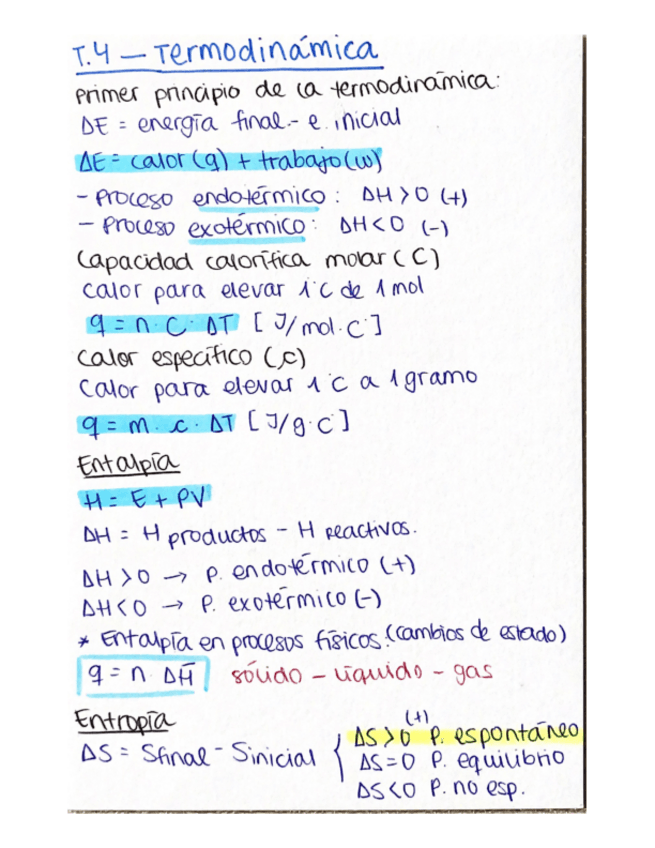 T.4 – Termodinámica
Primer principio de la termodinámica:
ΔE = energía final - e. inicial
ΔE = calor (q) + trabajo (w)
- Proceso endotérmico : ΔH > 0 (+)
- Proceso exotérmico : ΔH < 0 (-)
Capacidad calorífica molar (C)
Calor para elevar 1°C de 1 mol
q = n · C · ΔT [J/mol·C°]
Calor específico (c)
Calor para elevar 1°C a 1 gramo
q = m · c · ΔT [J/g·C°]
Entalpía
H = E + PV
ΔH = H productos - H reactivos.
ΔH > 0 → P. endotérmico (+)
ΔH < 0 → P. exotérmico (-)
* Entalpía en procesos físicos: (cambios de estado)
q = n · ΔH̄ sólido - líquido - gas
Entropía
(+)
ΔS > 0 P. espontáneo
ΔS = Sfinal - Sinicial { ΔS = 0 P. equilibrio
ΔS < 0 P. no esp.